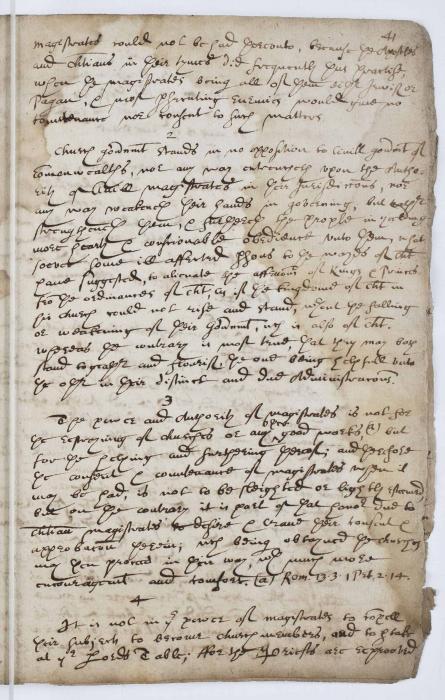 41
magistrates could not be had thereunto, because the Apostles
and Christians in their tymes did frequently thus practise,
when the magistrates being all of them either Jewish or
Pagan, & most persecuting enemies would give no
countenance nor consent to such matters.
2
Church goverment stands in no opposition to civill goverment of
comonwealths, nor any way intrencheth upon the Autho-
rity of Civill magistrates in their Jurisdictions, nor
any way weakneth their hands in governing, but rather
strengthneth them, & furthereth the people in yeilding
more hearty & conscionable obedience unto them, what
soever some ill affected persons to the wayes of Cht
have suggested, to alienate the affections of Kings & Princes
from the ordinances of Cht, as if the kingdome of Cht in
his church could not rise and stand, without the falling
or weakening of their goverment, wch is also of Cht.
whereas the contrary is most true, that they may both
stand together and flourish, the one being helpfull unto
the other in their distinct and due Administrations.
3
The power and Authority of magistrates is not for
the restrayning of churches or any other good works, (a) but
for the helping and furthering thereof; and therfore
the consent & countenance of magistrates when it
may be had, is not to be sleighted or lightly esteemed
but on the contrary it is part of that honor due to
Christian magistrates to desire & crave their consent &
approbation therein; wch being obtained the churches
may then proceed in their way, wth much more
encouragement and comfort. (a) Rom. 13.3. 1 Pet. 2.14.
4
It is not in ye power of magistrates to compell
their subjects to become church members, and to ptake
at ye Lords Table; ffor the Priests are reprooved